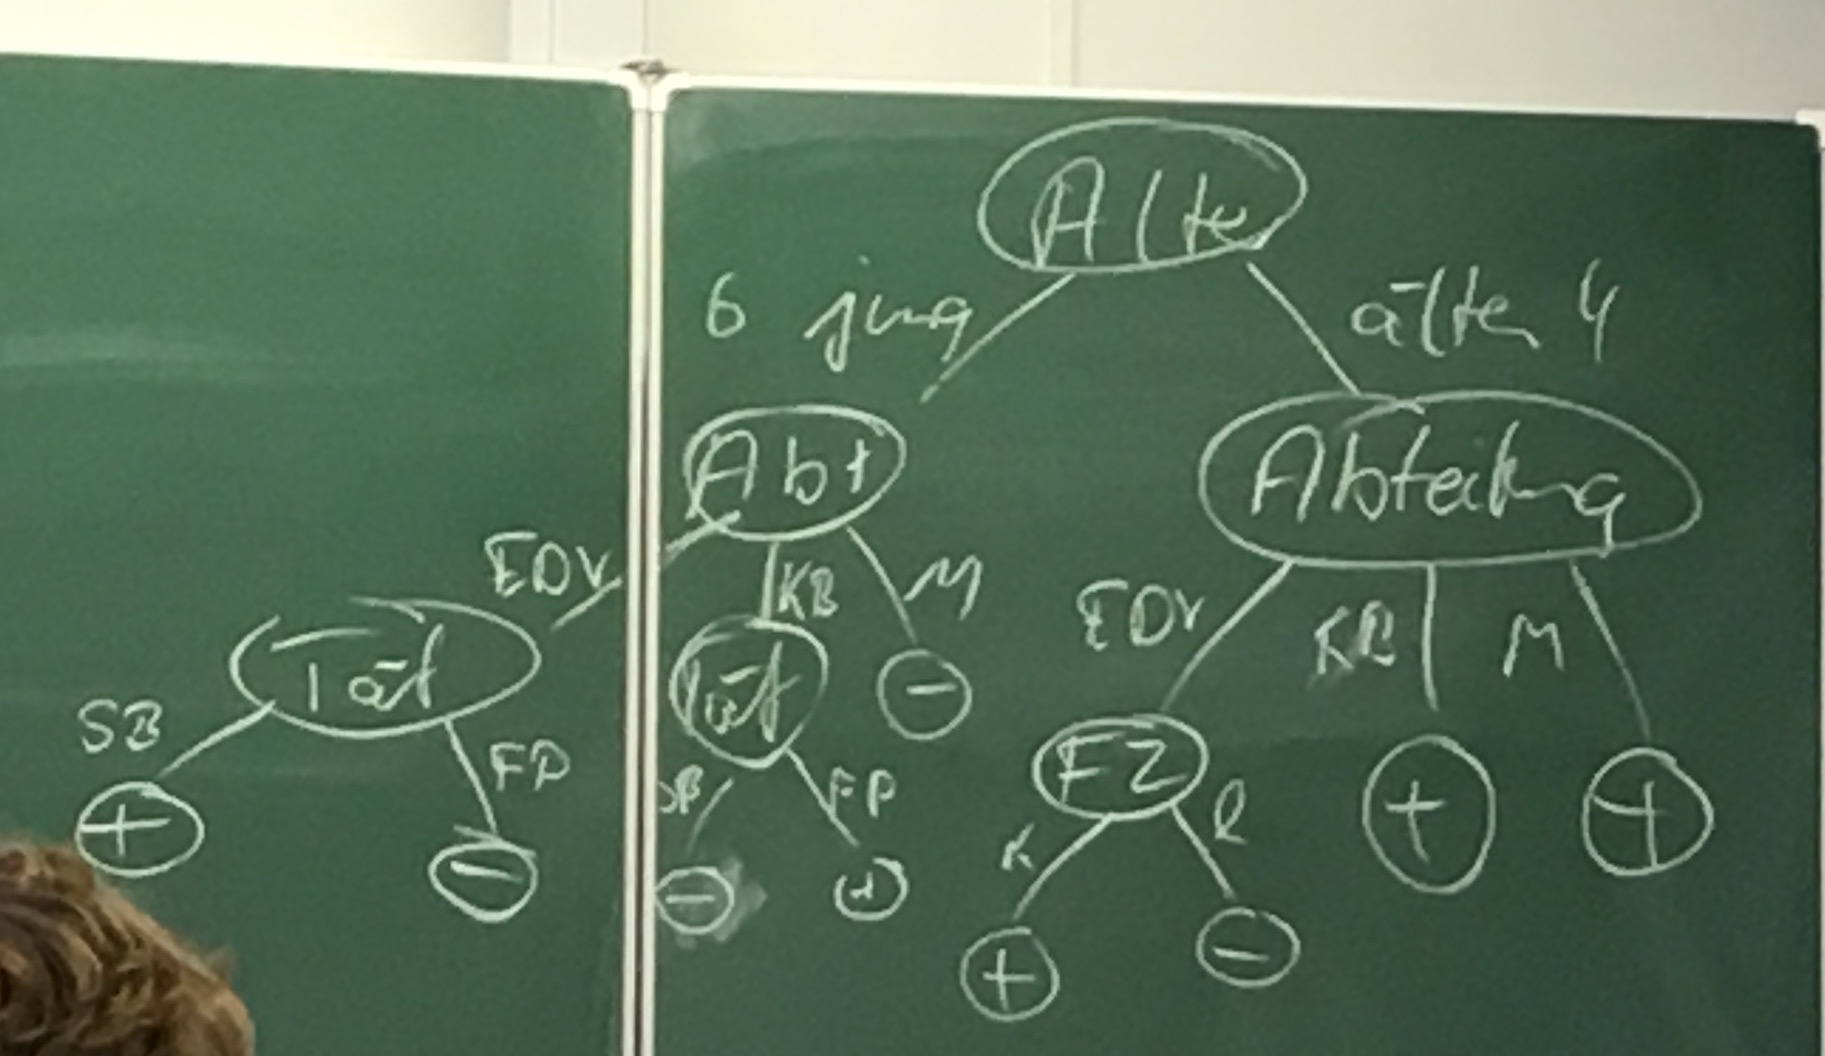 Alte
6 jung älter 4
Abt Abteilung
EDV KB M EDV KB M
Tät Tät −
SB FP FZ + +
+ − SB FP K R
− + + −